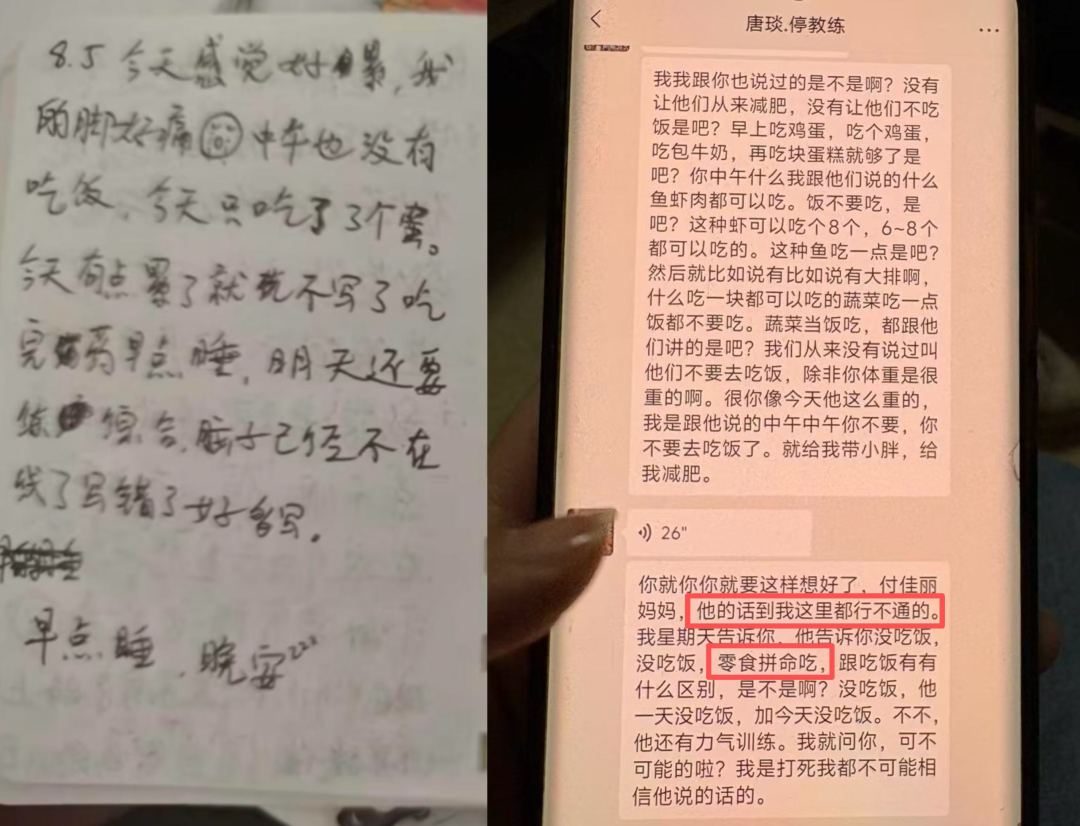 8.5 今天感觉好累,我
的脚好痛 中午也没有
吃饭,今天只吃了3个蛋。
今天有点累了就先不写了吃
完药早点睡,明天还要
练综合,脑子已经不在
线了写错了好多字。
早点睡,晚安zzz
唐琰.停教练
我我跟你也说过的是不是啊?没有
让他们从来减肥,没有让他们不吃
饭是吧?早上吃鸡蛋,吃个鸡蛋,
吃包牛奶,再吃块蛋糕就够了是
吧?你中午什么我跟他们说的什么
鱼虾肉都可以吃。饭不要吃,是
吧?这种虾可以吃个8个,6~8个
都可以吃的。这种鱼吃一点是吧?
然后就比如说有比如说有大排啊,
什么吃一块都可以吃的蔬菜吃一点
饭都不要吃。蔬菜当饭吃,都跟他
们讲的是吧?我们从来没有说过叫
他们不要去吃饭,除非你体重是很
重的啊。很你像今天他这么重的,
我是跟他说的中午中午你不要,你
不要去吃饭了。就给我带小胖,给
我减肥。
26"
你就你你就要这样想好了,付佳丽
妈妈,他的话到我这里都行不通的。
我星期天告诉你、他告诉你没吃饭,
没吃饭,零食拼命吃,跟吃饭有有
什么区别,是不是啊?没吃饭,他
一天没吃饭,加今天没吃饭。不不,
他还有力气训练。我就问你,可不
可能的啦?我是打死我都不可能相
信他说的话的。